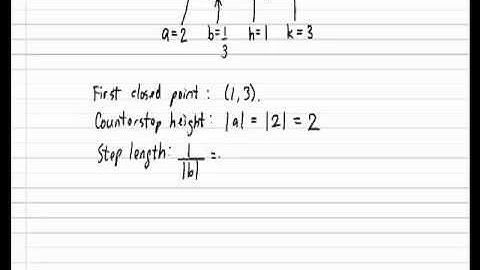 a=2 b=1/3 h=1 k=3
First closed point: (1,3).
Counterstep height: |a| = |2| = 2
Step length: 1/|b| =